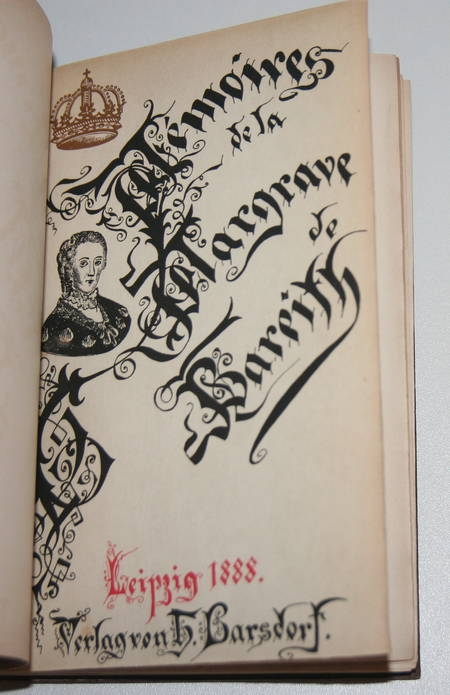 Mémoires
de la
Margrave
de
Bareith
Leipzig 1888.
Verlag von H. Barsdorf.